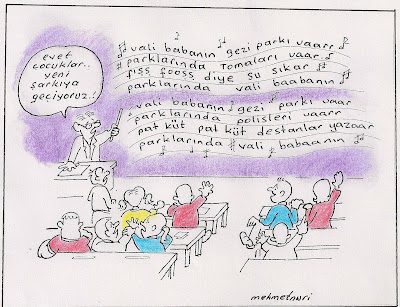 evet
çocuklar..
yeni
şarkıya
geçiyoruz.!
vali babanın gezi parkı vaarr
parklarında tomaları vaar
fıss fooss diye su sıkar
parklarında vali baabanın
vali babanın gezi parkı vaar
parklarında polisleri vaarr
pat küt pat küt destanlar yazaar
parklarında vali babaanın
mehmetnuri